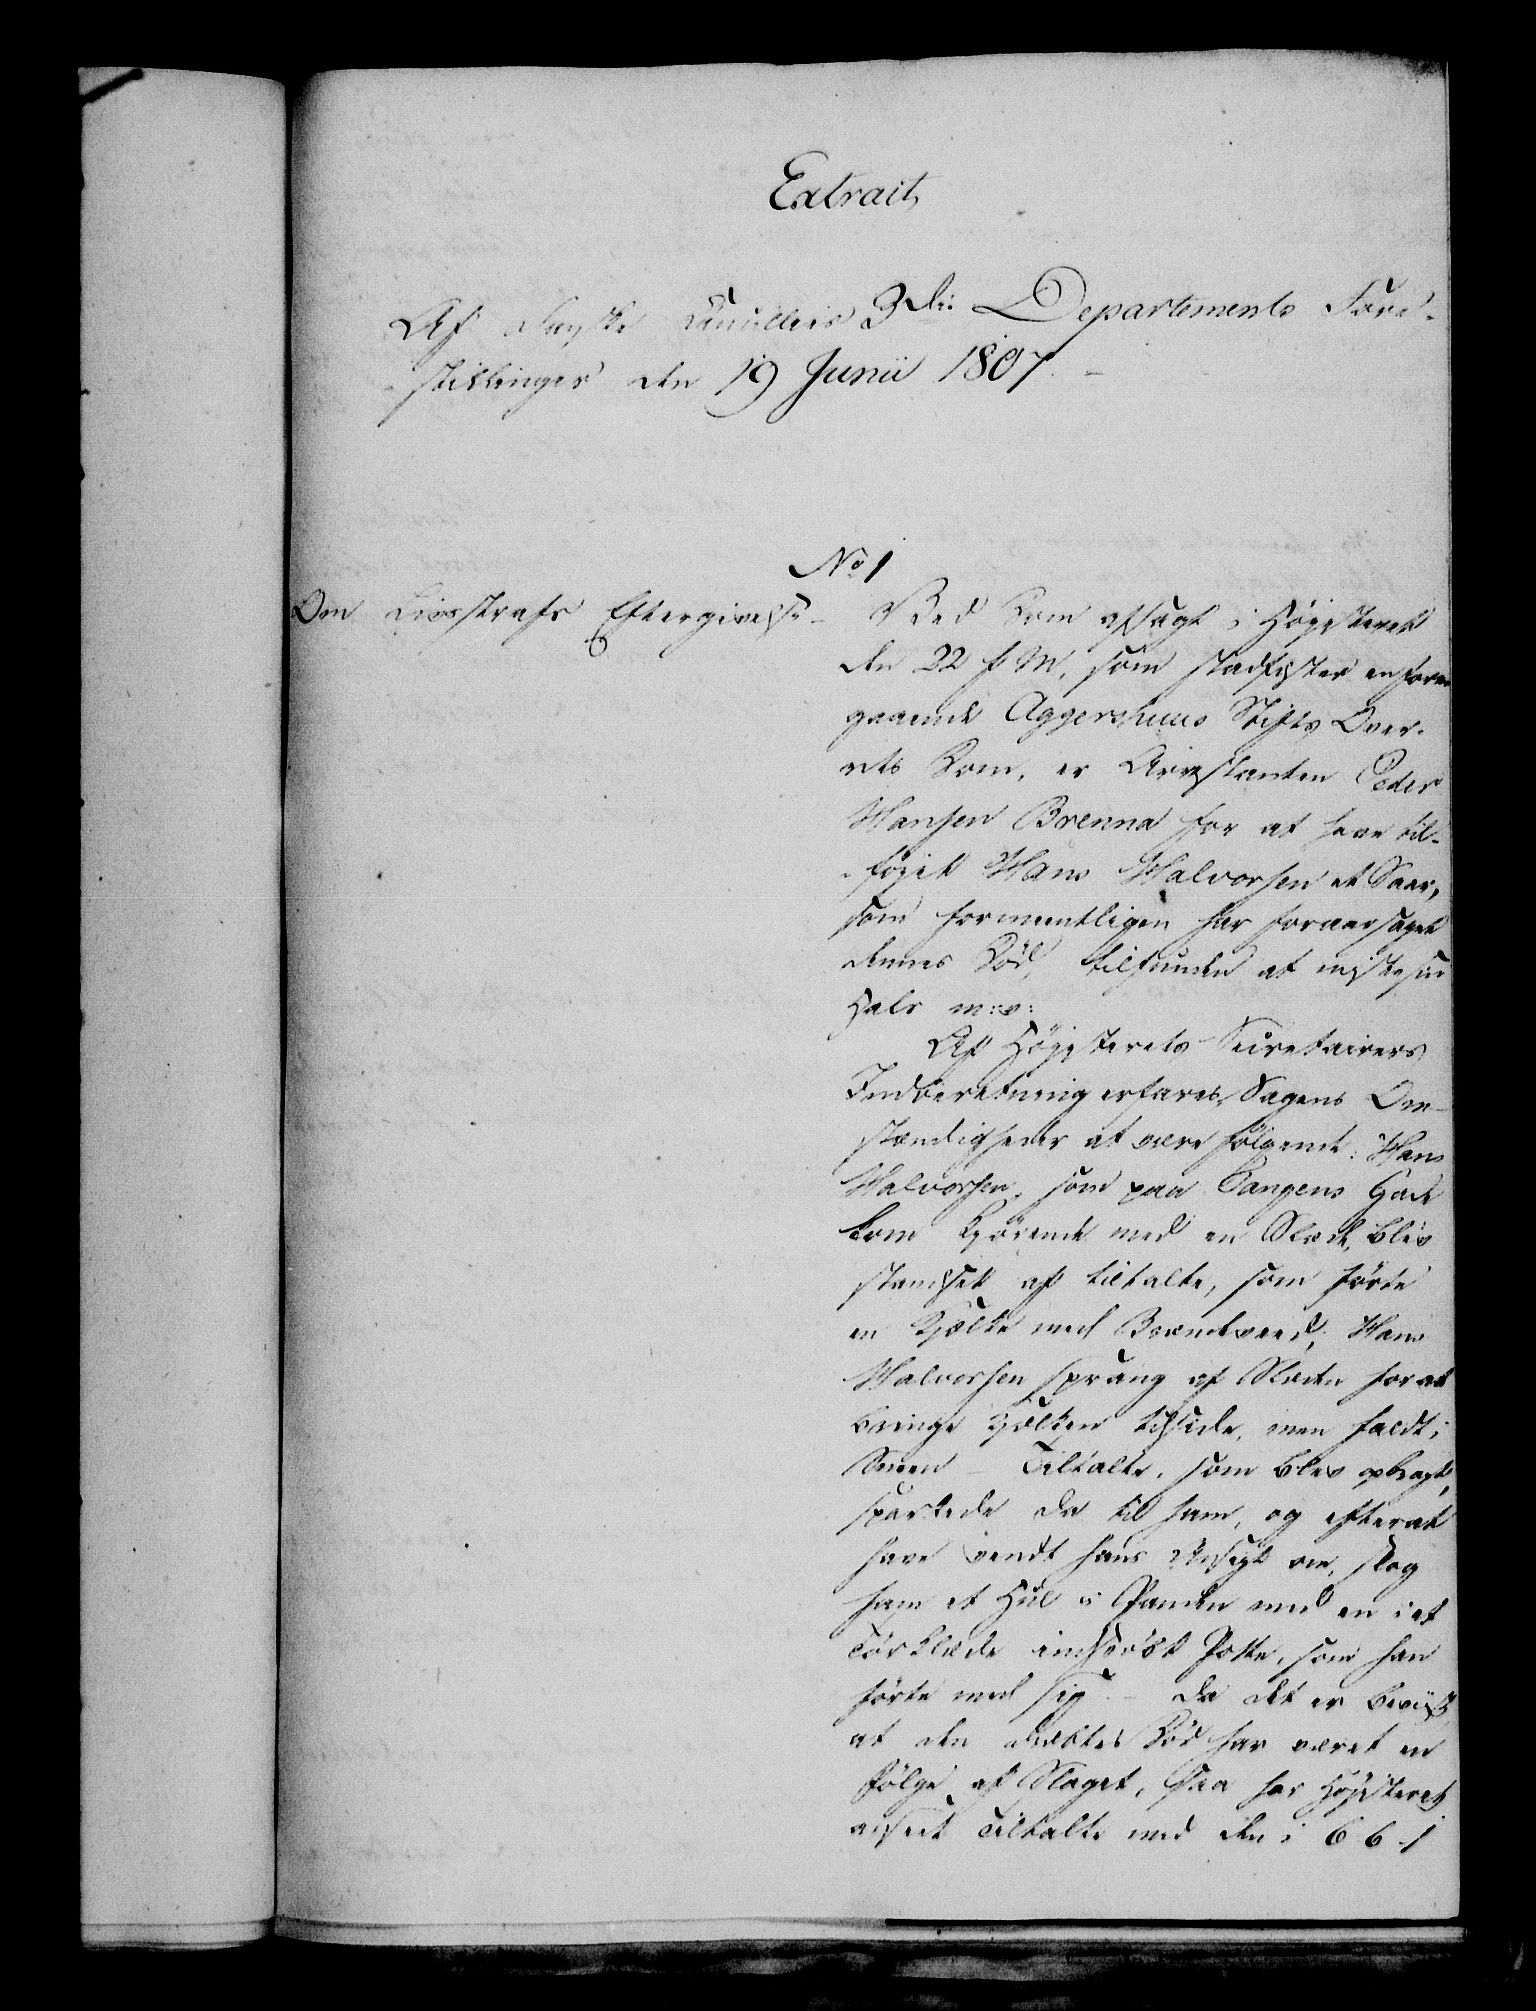 Extrait
Af Danske Cancellies 3die Departements Fore-
-stillinger den 19 Junii 1807. -
No 1
Om Livsstrafs Eftergivelse -
Ved Dom afsagt i Høyesteret
den 22 f. M., som stadfæster en foran
gaaende Aggershuus Stifts Over-
rets Dom, er Arrestanten Peder
Hansen Brenna for at have til-
-føjet Hans Halvorsen et Saar,
som formeentligen har foraarsaget
dennes Død, tilfunden at miste sin
Hals m: v:
Af Høyesterets Secretairers
Indberetning erfares Sagens Om-
stændigheder at være følgende: Hans
Halvorsen, som paa Tangens Gade
kom kjørende med en Slæde, blev
standset af tiltalte, som førte
en Kjælke med Brændeveed, Hans
Halvorsen sprang af Slæden for at
bringe Kjælken tilside, men faldt i
Sneen - Tiltalte, som blev opbragt,
sparkede da til ham, og efterat
have vendt hans Ansigt om, slog
ham et Hul i Panden med en i et
Tørklæde indsvøbt Potte, som han
førte med sig. - Da det er beviist
at den dræbtes Død har været en
Følge af Slaget, saa har Høyesteret
anseet Tiltalte med den i 6 6 1